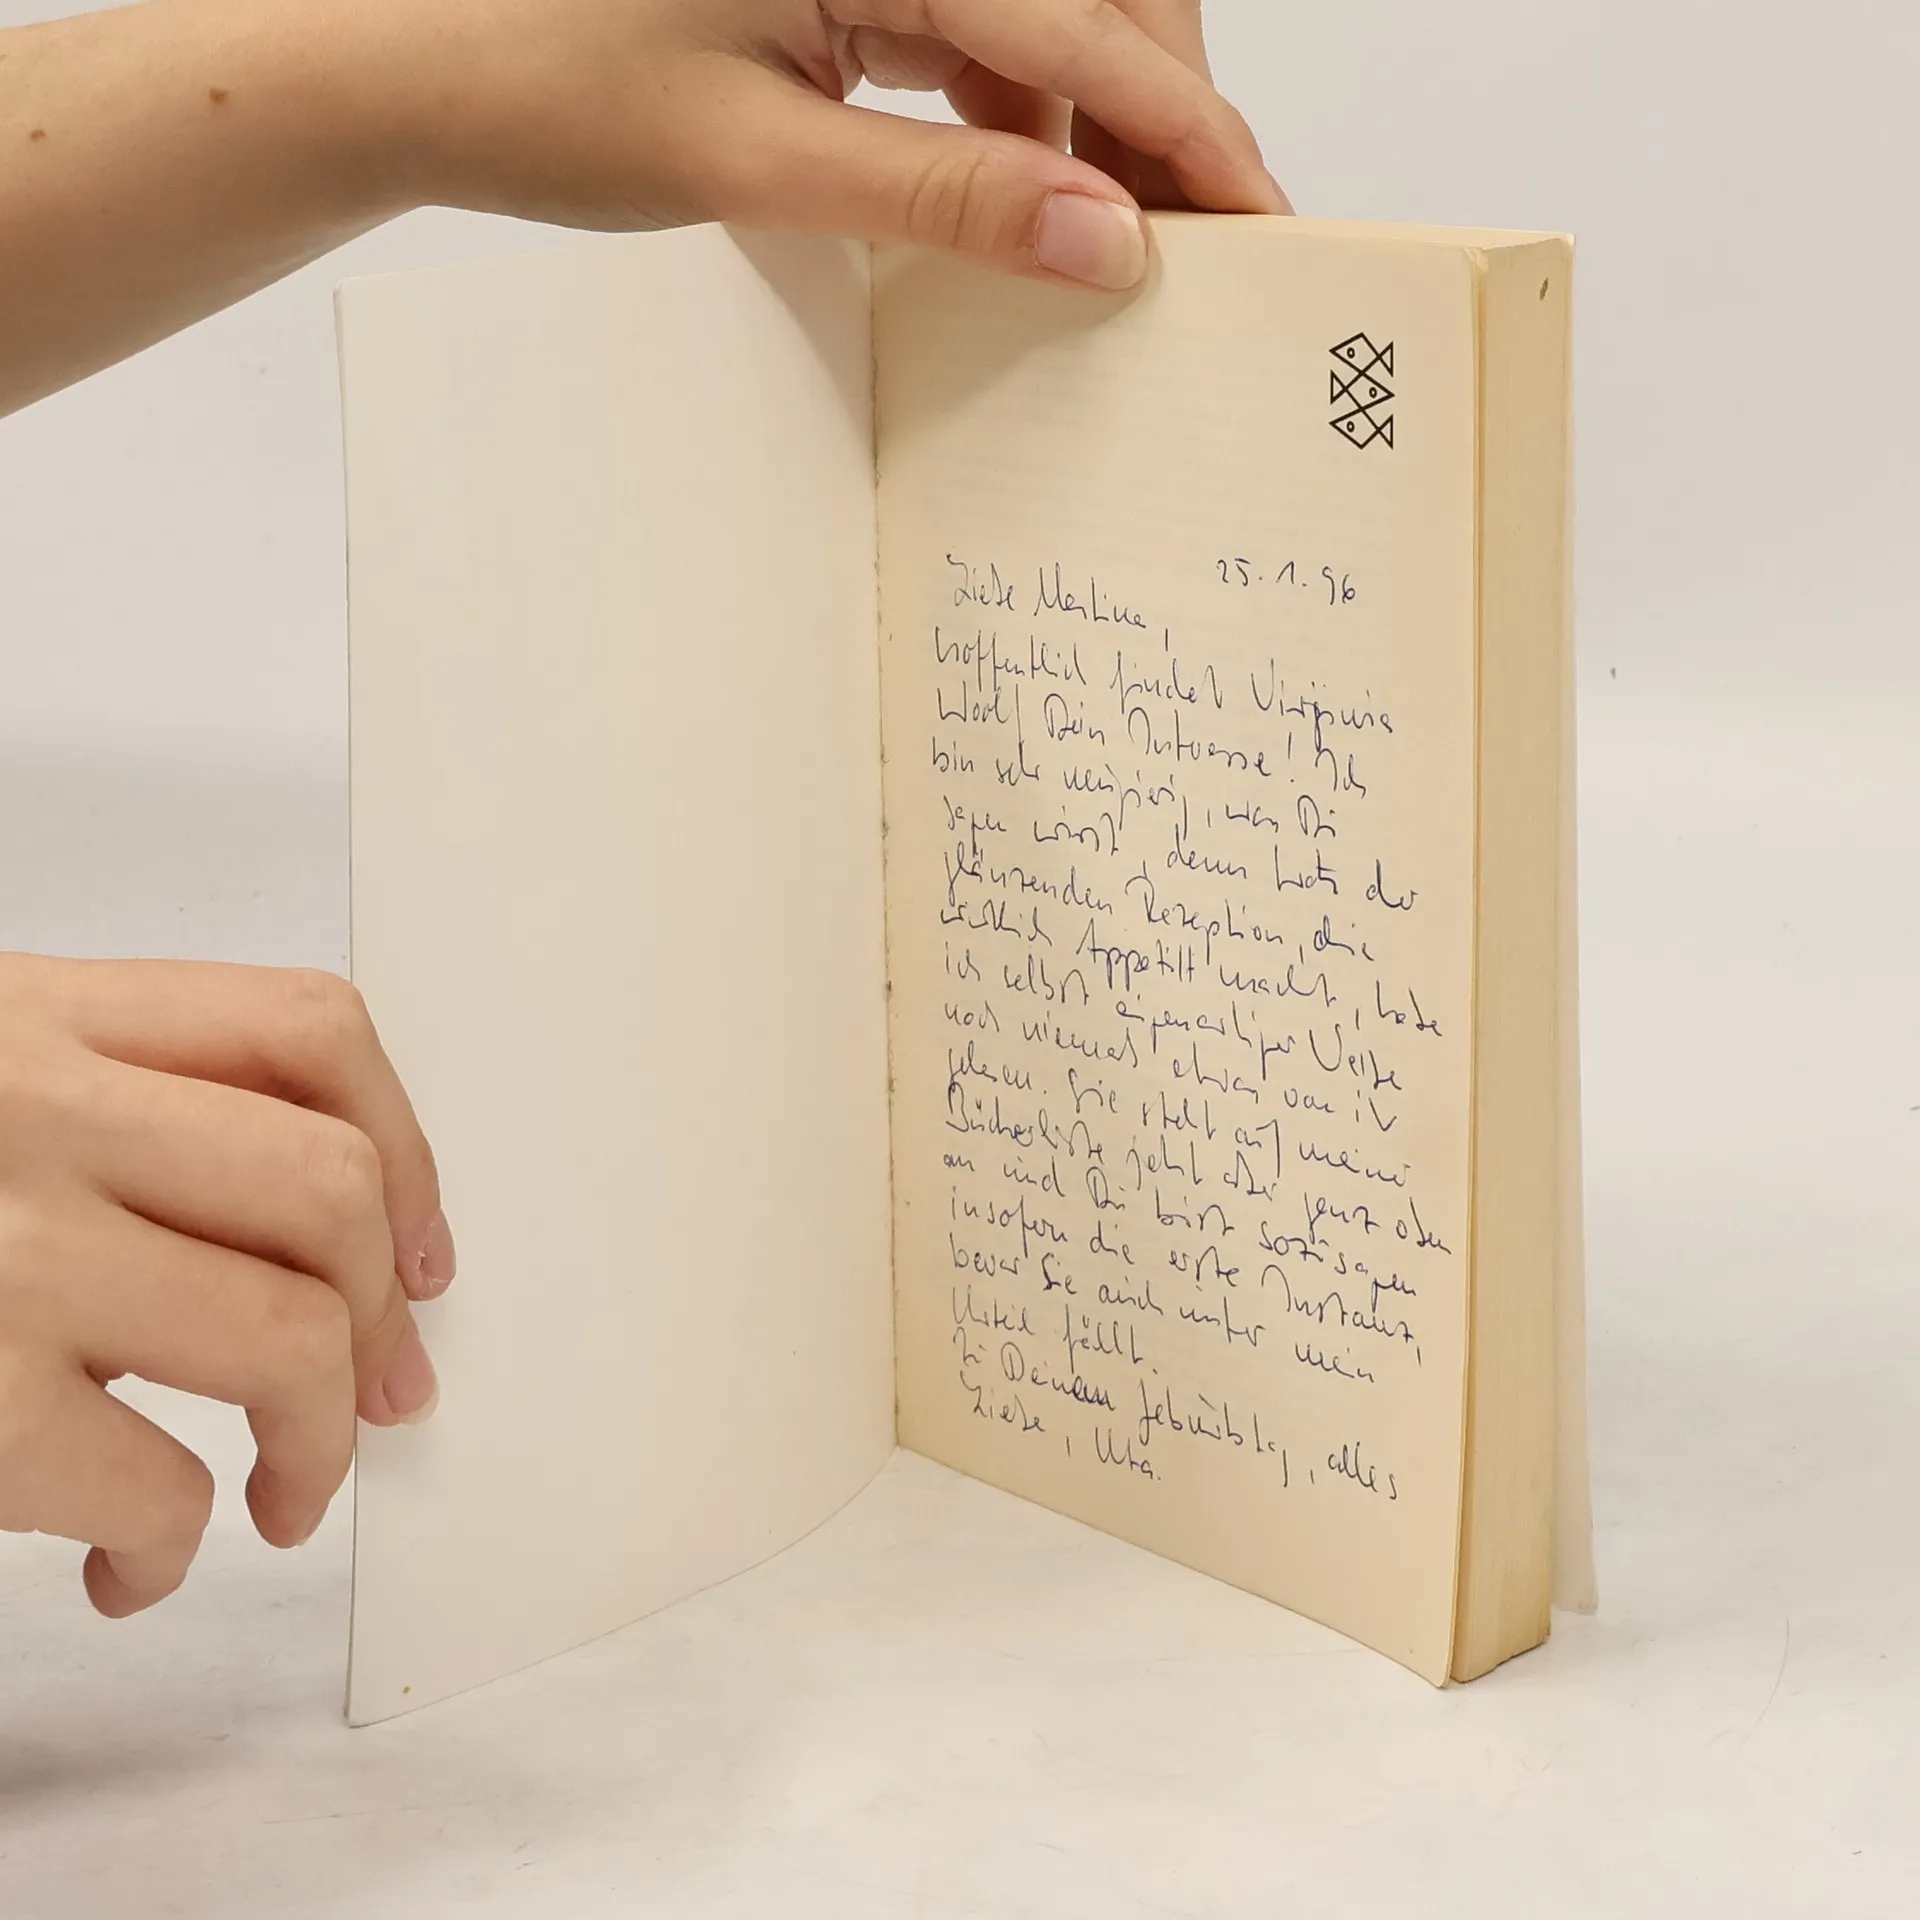 25.1.96
Liebe Martina,
hoffentlich findet Virginia
Woolf Dein Interesse! Ich
bin sehr neugierig, was Du
sagen wirst, denn trotz der
glänzenden Rezeption, die
wirklich Appetitt macht, habe
ich selbst eigenartiger Weise
noch niemals etwas von ihr
gelesen. Sie steht auf meiner
Bücherliste jetzt aber ganz oben
an und Du bist sozusagen
insofern die erste Instanz,
bevor Sie auch unter mein
Urteil fällt.
Zu Deinem Geburtstag, alles
Liebe, Uta.